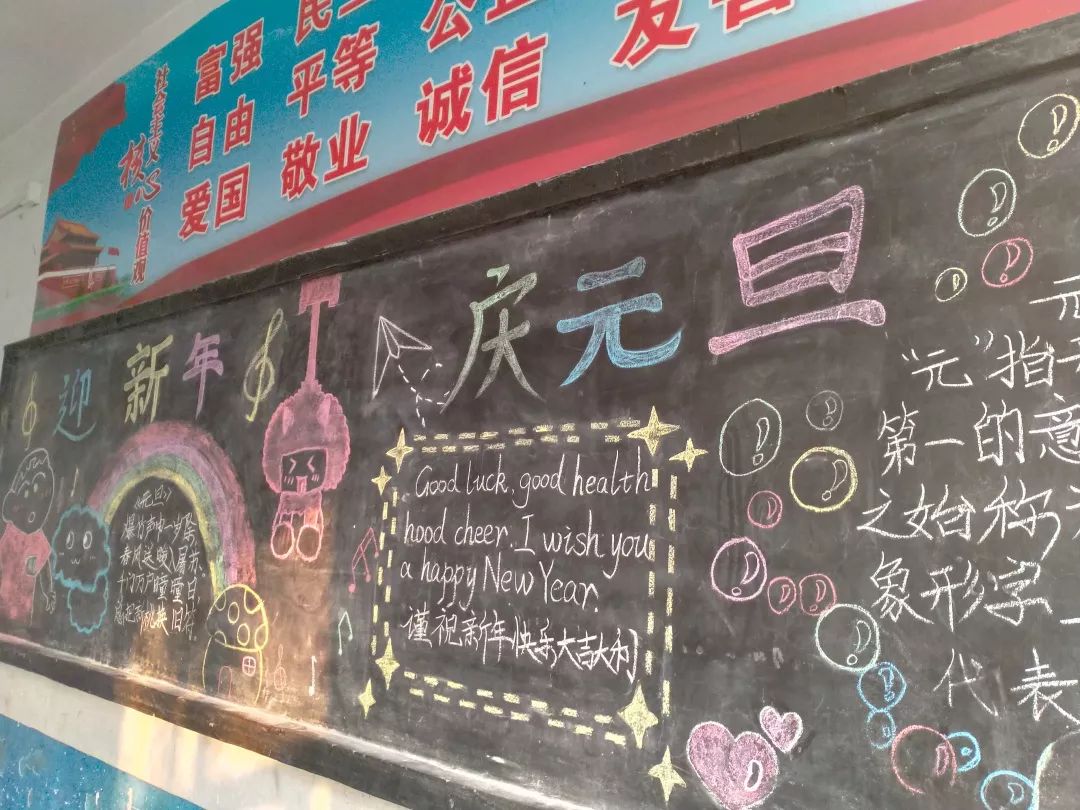 社会主义
核心价值观
富强 民
自由 平等 公正
爱国 敬业 诚信 友善
迎新年
庆元旦
《元旦》
爆竹声中一岁除
春风送暖入屠苏。
千门万户曈曈日
总把新桃换旧符
Good luck, good health
hood cheer. I wish you
a happy New Year.
谨祝新年快乐大吉大利
元
“元”指
第一的意
之始称
象形字
代表